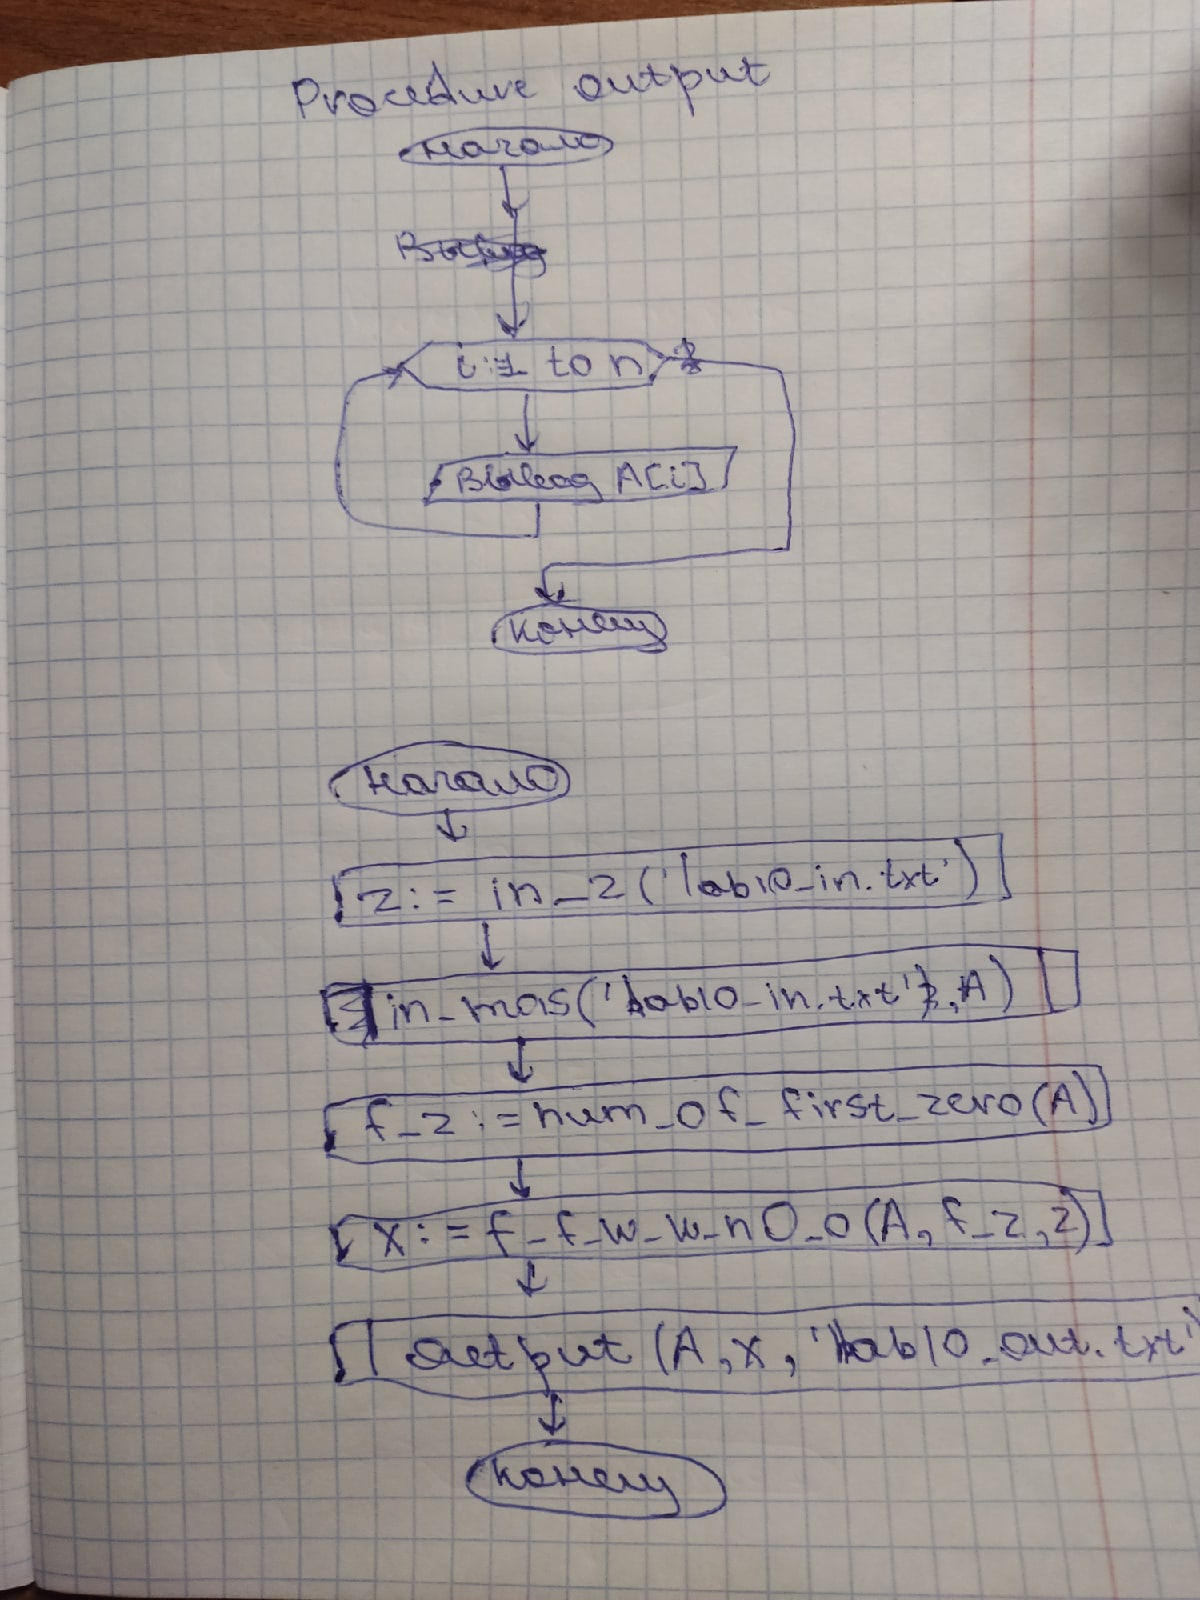 Procedure output
начало
i:1 to n
вывод A[i]
конец
начало
z:= in_z('lab10_in.txt')
in_mas('lab10_in.txt', A)
f_z:=num_of_first_zero(A)
x:= f_f_w_w_n0_o(A, f_z, z)
output (A, x, 'lab10_out.txt'
конец